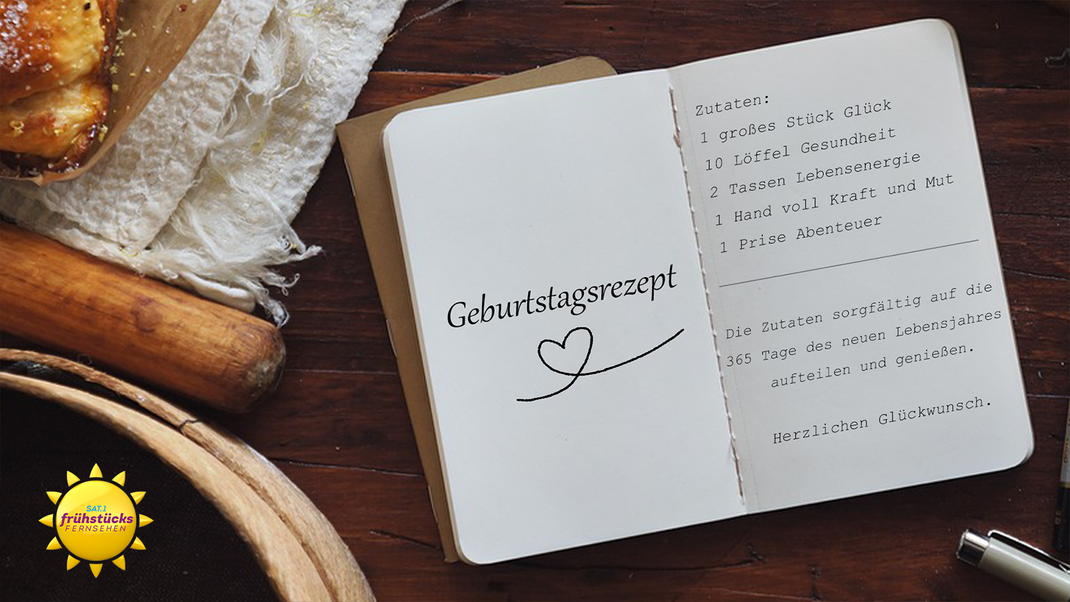 Geburtstagsrezept
Zutaten:
1 großes Stück Glück
10 Löffel Gesundheit
2 Tassen Lebensenergie
1 Hand voll Kraft und Mut
1 Prise Abenteuer
Die Zutaten sorgfältig auf die
365 Tage des neuen Lebensjahres
aufteilen und genießen.
Herzlichen Glückwunsch.
SAT.1
frühstücks
FERNSEHEN